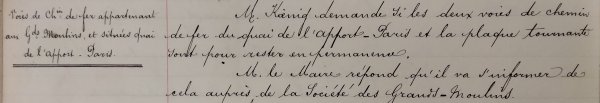 Voies de Ch^in de fer appartenant
aux G^ds Moulins, et situées quai
de l'Apport-Paris.
M. Kœnig demande si les deux voies de chemin
de fer du quai de l'Apport-Paris et la plaque tournante
sont pour rester en permanence.
M. le Maire répond qu'il va s'informer de
cela auprès de la Société des Grands-Moulins.